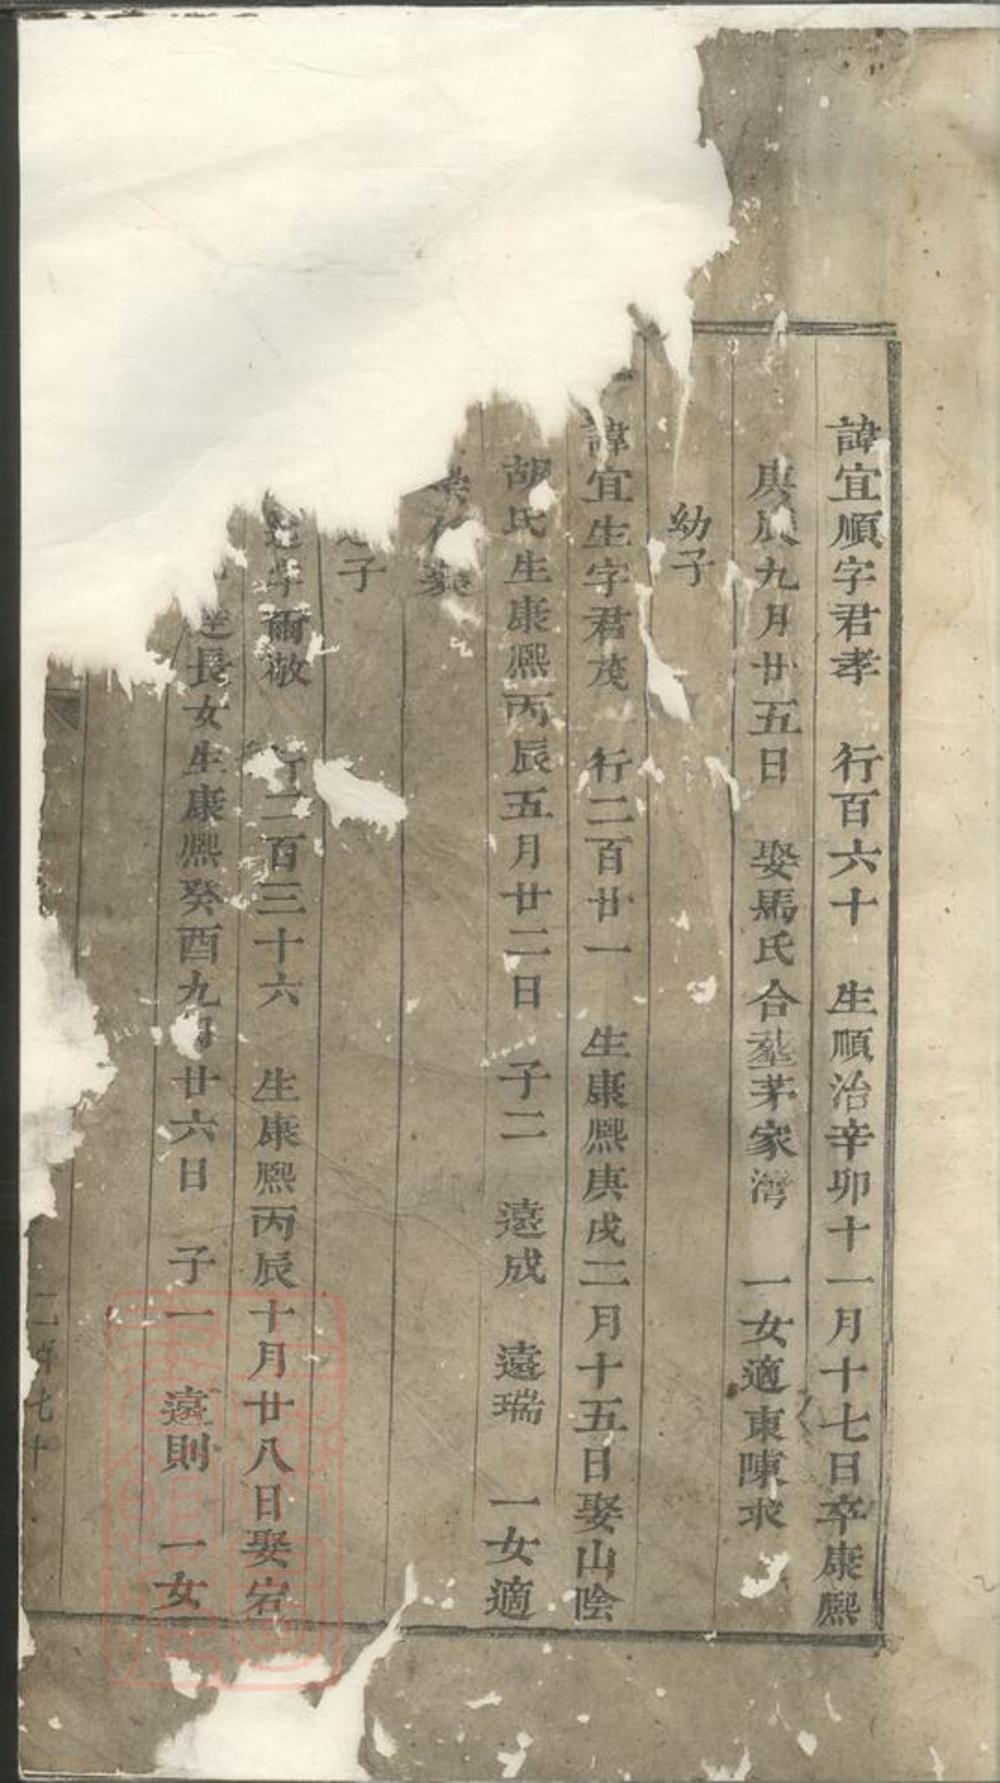 諱宜順字君孝 行百六十 生順治辛卯十一月十七日卒康熙
庚辰九月廿五日 娶馬氏合塟茅家灣 一女適東陳求
幼子
諱宜生字君茂 行二百廿一 生康熙庚戌二月十五日娶山陰
胡氏生康熙丙辰五月廿二日 子二 遠成 遠瑞 一女適
子
字爾敬 行二百三十六 生康熙丙辰十月廿八日娶宕
長女生康熙癸酉九月廿六日 子一 遠則 一女
二百七十